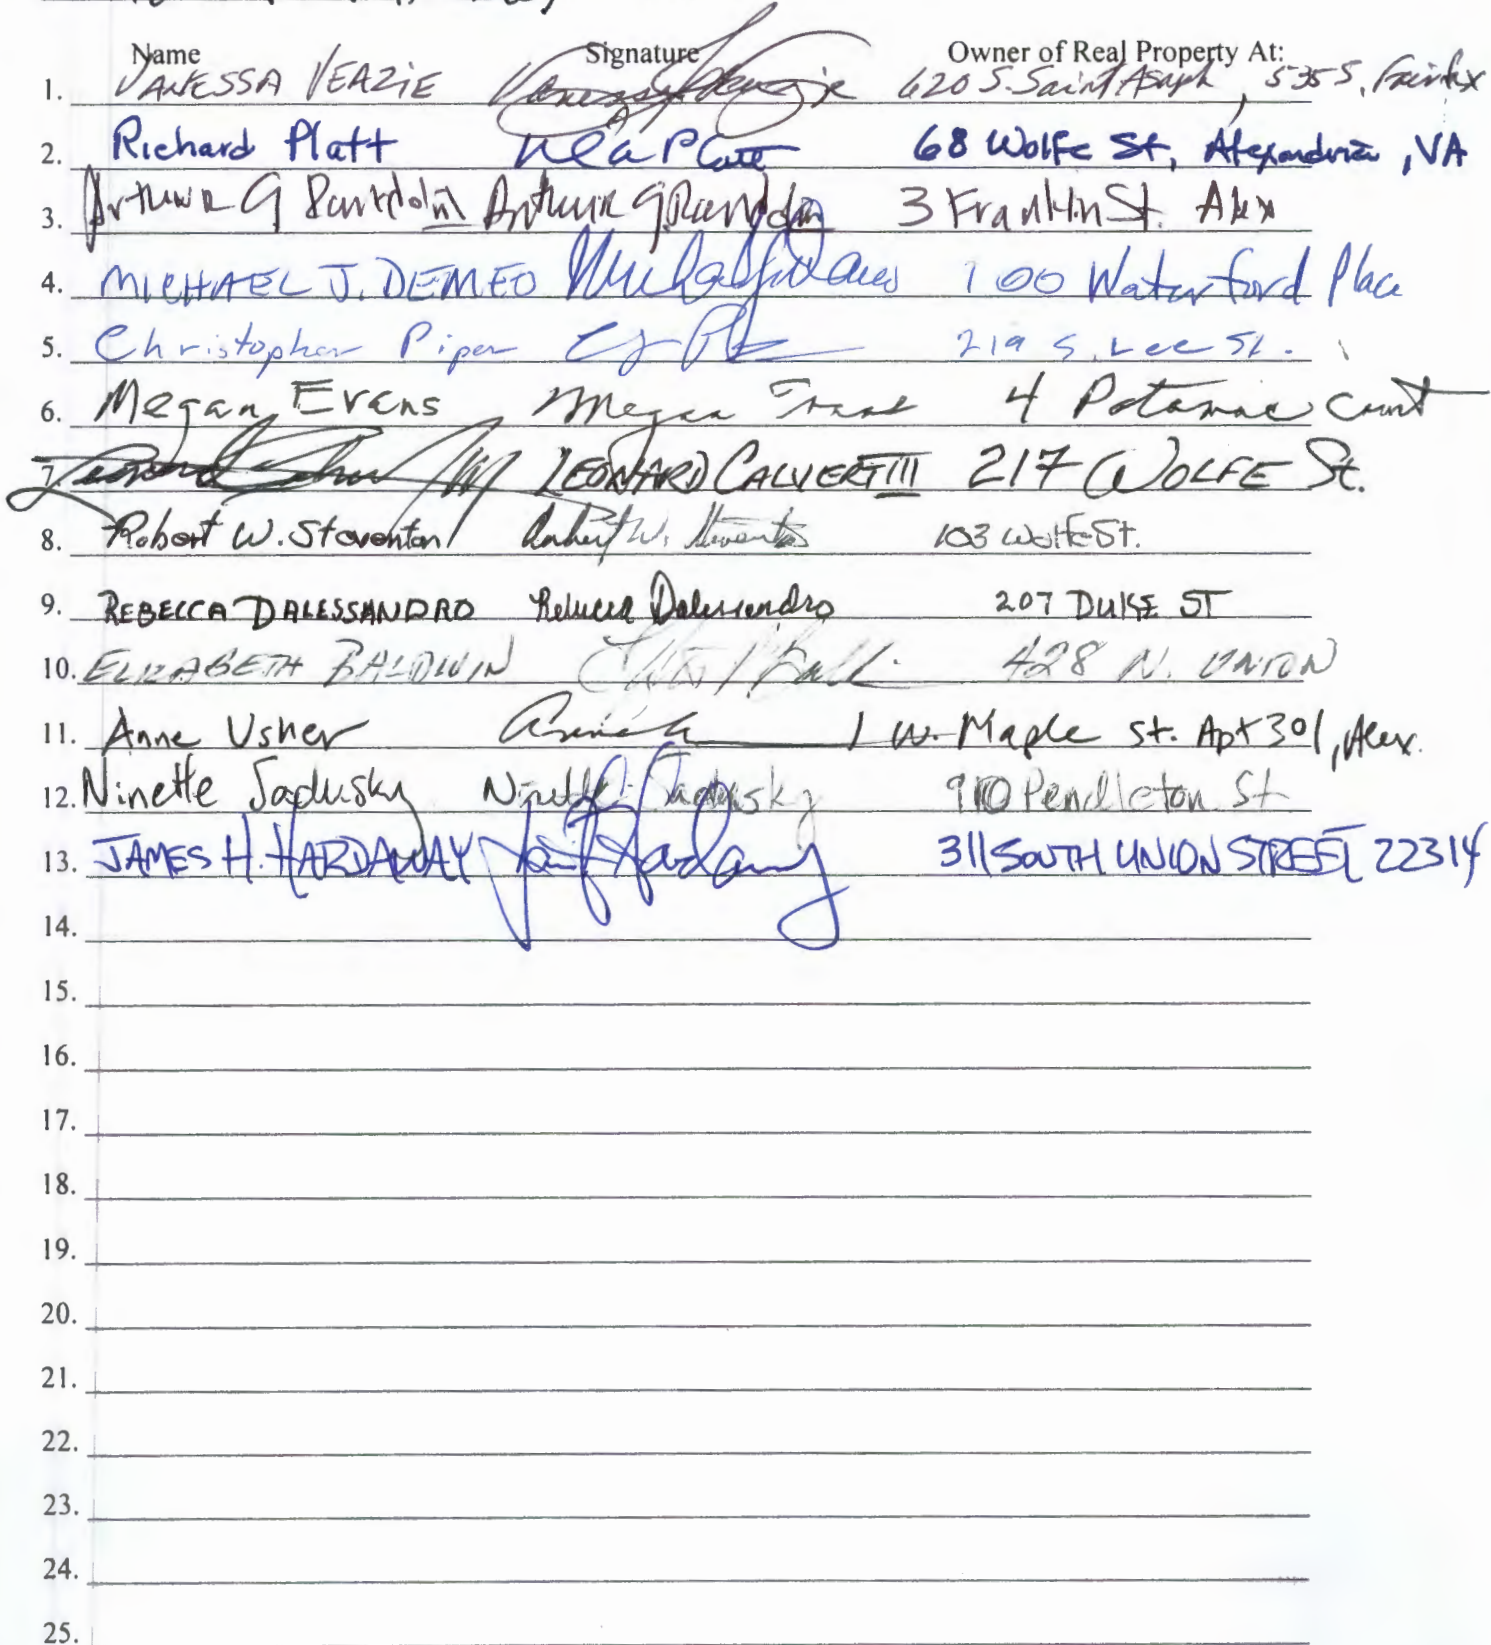 Name Signature Owner of Real Property At:
1. VANESSA VEAZIE 620 S. Saint Asaph, 535 S. Fairfax
2. Richard Platt 68 Wolfe St, Alexandria, VA
3. Arthur G Arthur G 3 Franklin St. Alex
4. MICHAEL J. DEMEO 100 Waterford Place
5. Christopher Piper 219 S. Lee St.
6. Megan Evans Megan Evans 4 Potomac Court
7. LEONARD CALVERT III 217 WOLFE St.
8. Robert W. Stoventon Robert W. 103 Wolfe St.
9. REBECCA DALESSANDRO Rebecca Dalessandro 207 DUKE ST
10. ELIZABETH BALDWIN 428 N. UNION
11. Anne Usher 1 W. Maple St. Apt 301, Alex.
12. Ninette Sadusky Ninette Sadusky 910 Pendleton St
13. JAMES H. HARDAWAY 311 SOUTH UNION STREET 22314
14.
15.
16.
17.
18.
19.
20.
21.
22.
23.
24.
25.